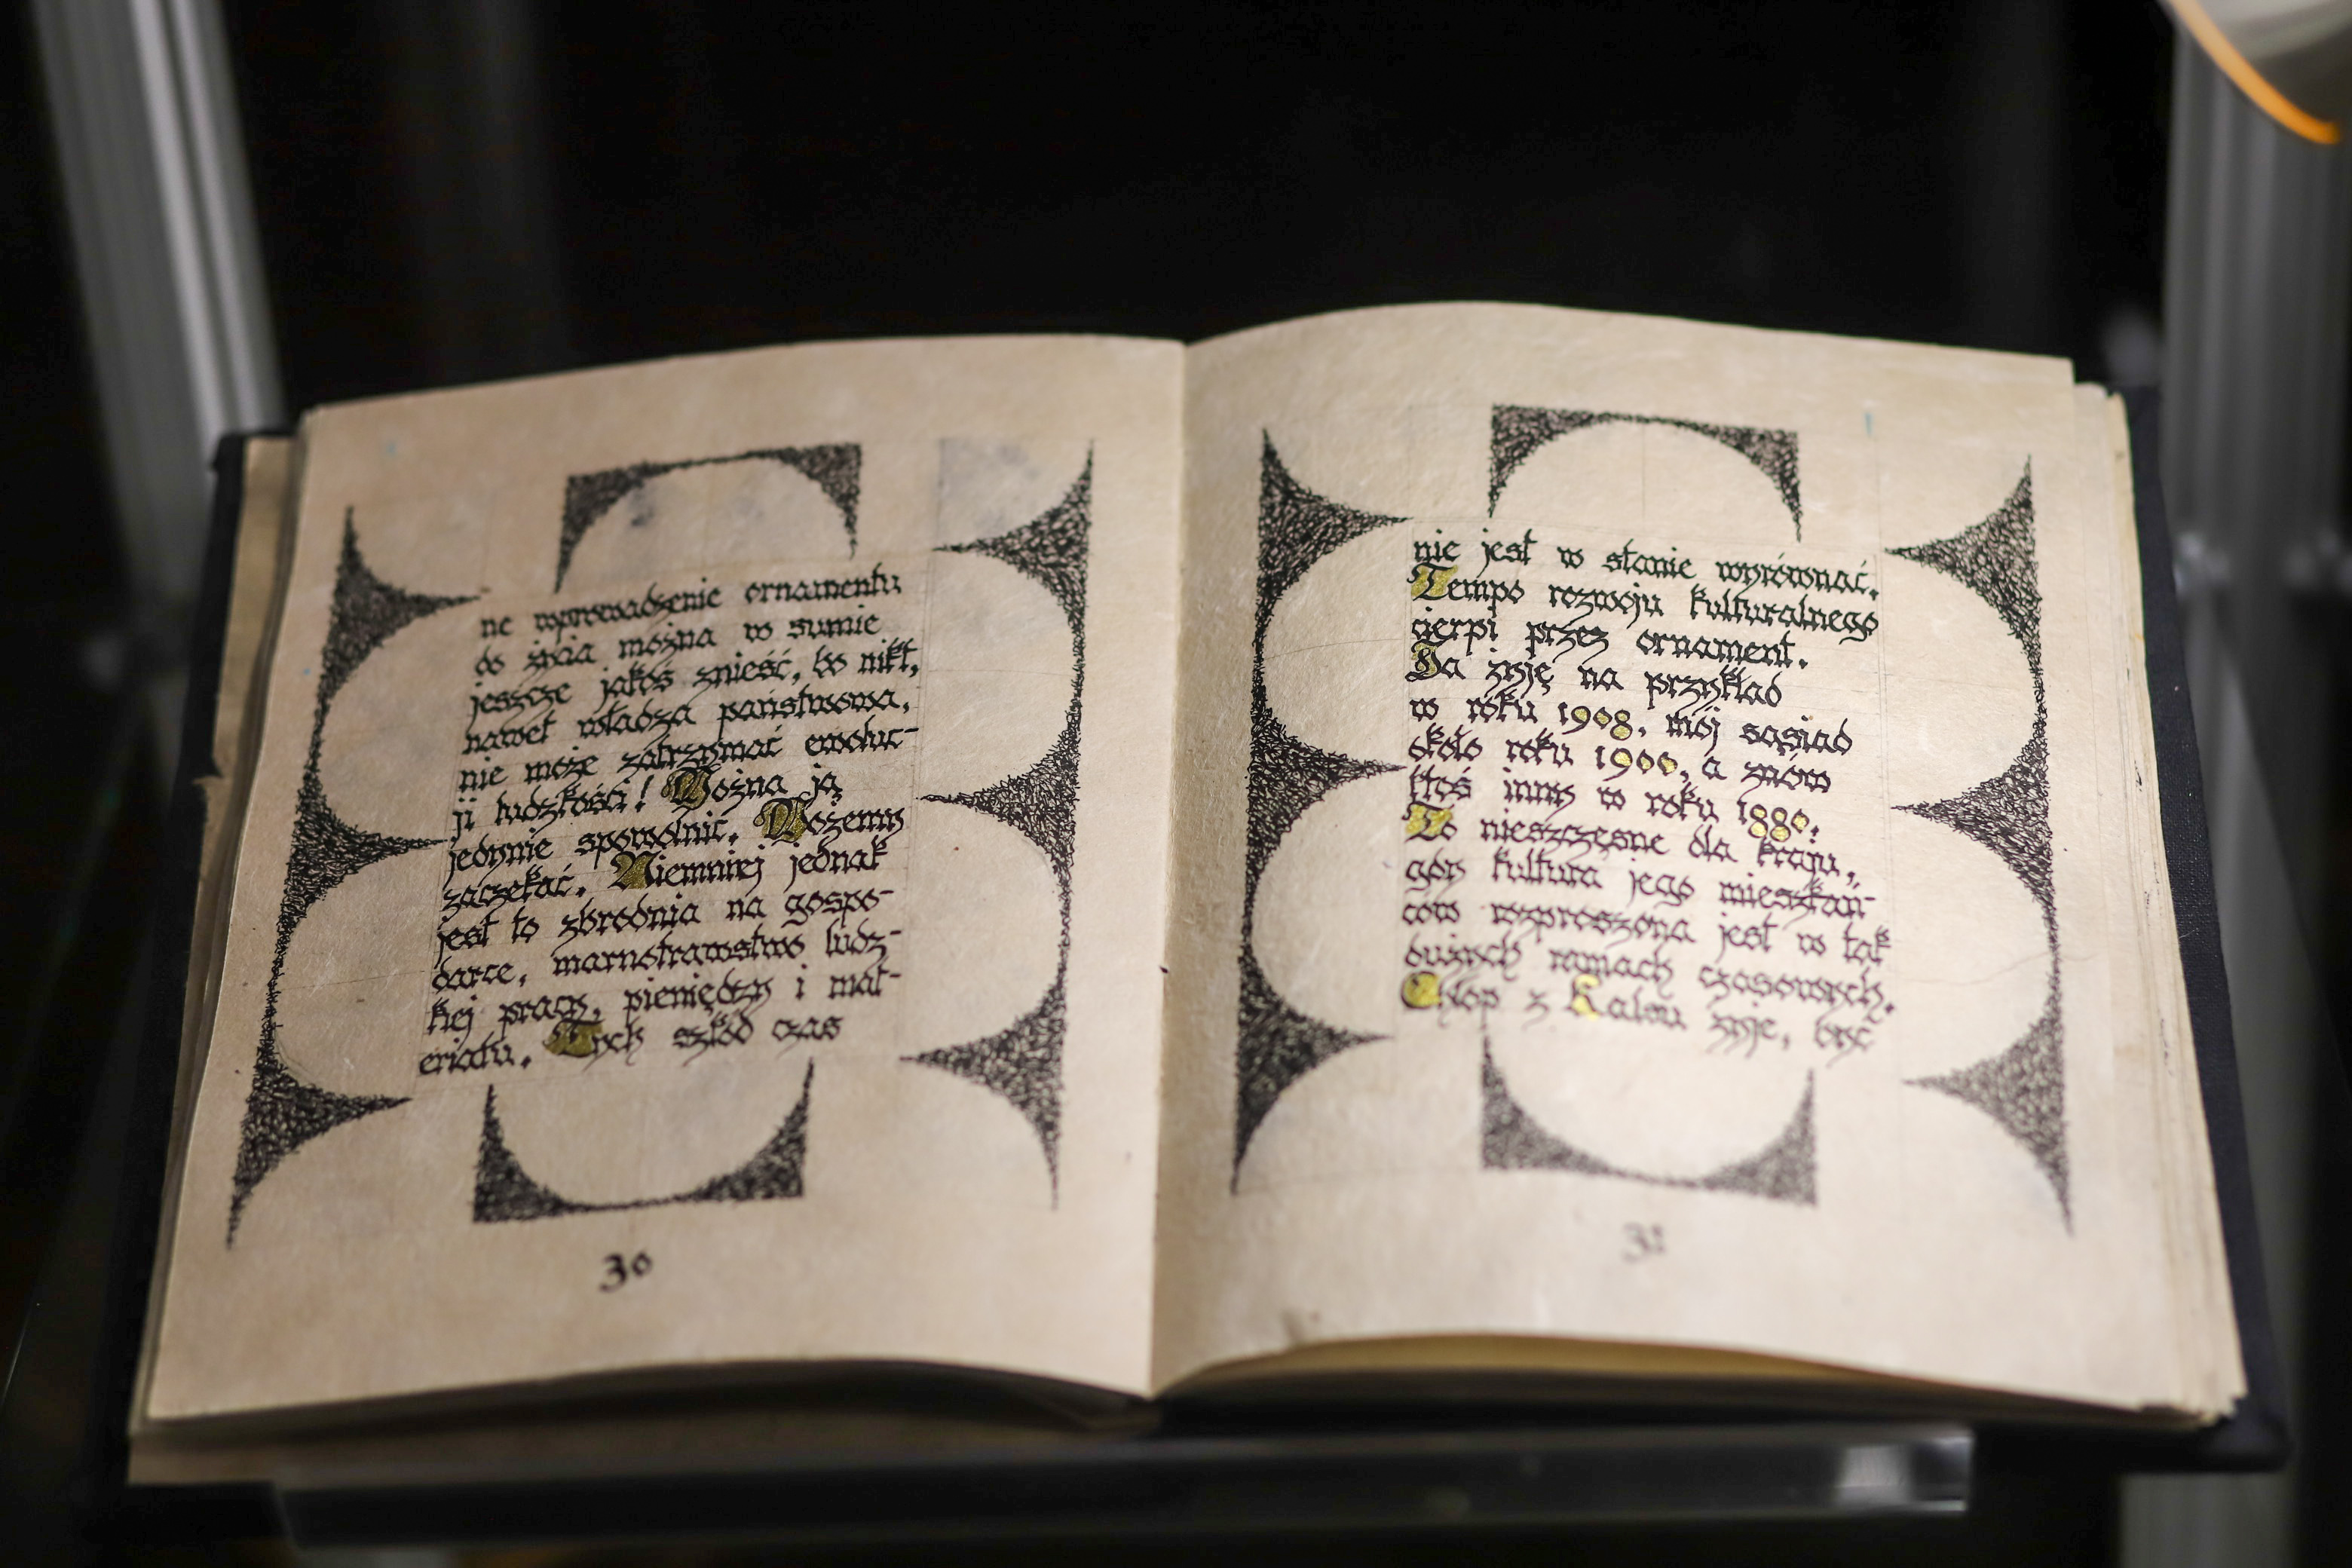 ne wprowadzenie ornamentu
do życia można w sumie
jeszcze jakoś znieść, bo nikt,
nawet władza państwowa,
nie może zatrzymać ewoluc-
ji ludzkości! Można ją
jedynie spowolnić. Możemy
zaczekać. Niemniej jednak
jest to zbrodnia na gospo-
darce, marnotrawstwo ludz-
kiej pracy, pieniędzy i mat-
eriału. Tych szkód czas
30
nie jest w stanie wyrównać.
Tempo rozwoju kulturalnego
cierpi przez ornament.
Ja żyję na przykład
w roku 1908, mój sąsiad
około roku 1900, a znów
ktoś inny w roku 1880.
To nieszczęsne dla kraju,
gdy kultura jego mieszkań-
ców rozproszona jest w tak
dużych ramach czasowych.
Chłop z Kalsu żyje, być
31